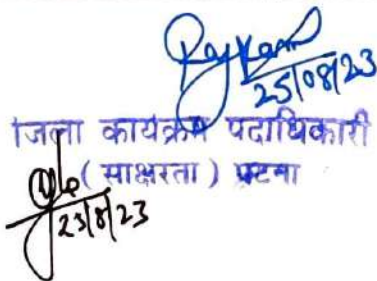 25/08/23
जिला कार्यक्रम पदाधिकारी
( साक्षरता ) पटना
23/8/23